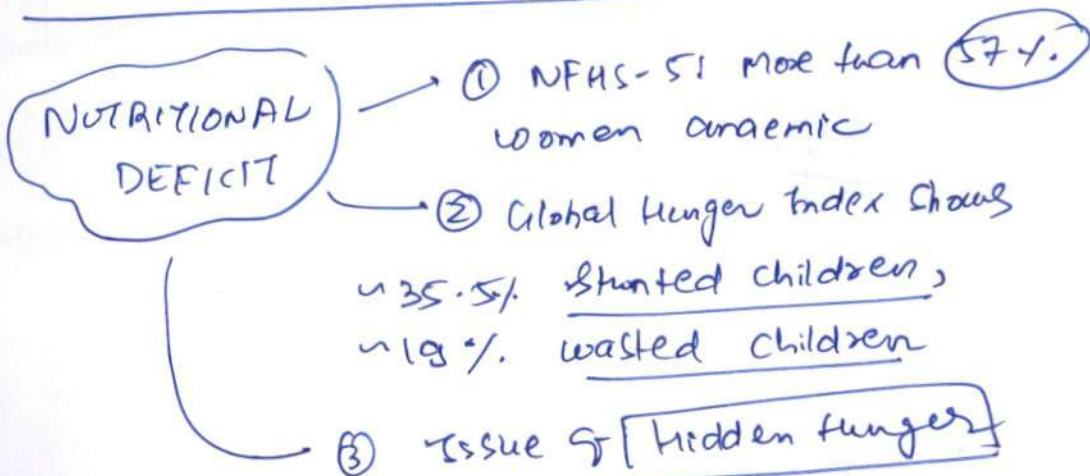 NUTRITIONAL
DEFICIT
① NFHS-5: more than 57%.
women anaemic
② Global Hunger Index shows
~35.5% stunted children,
~19%. wasted children
③ Issue of Hidden Hunger